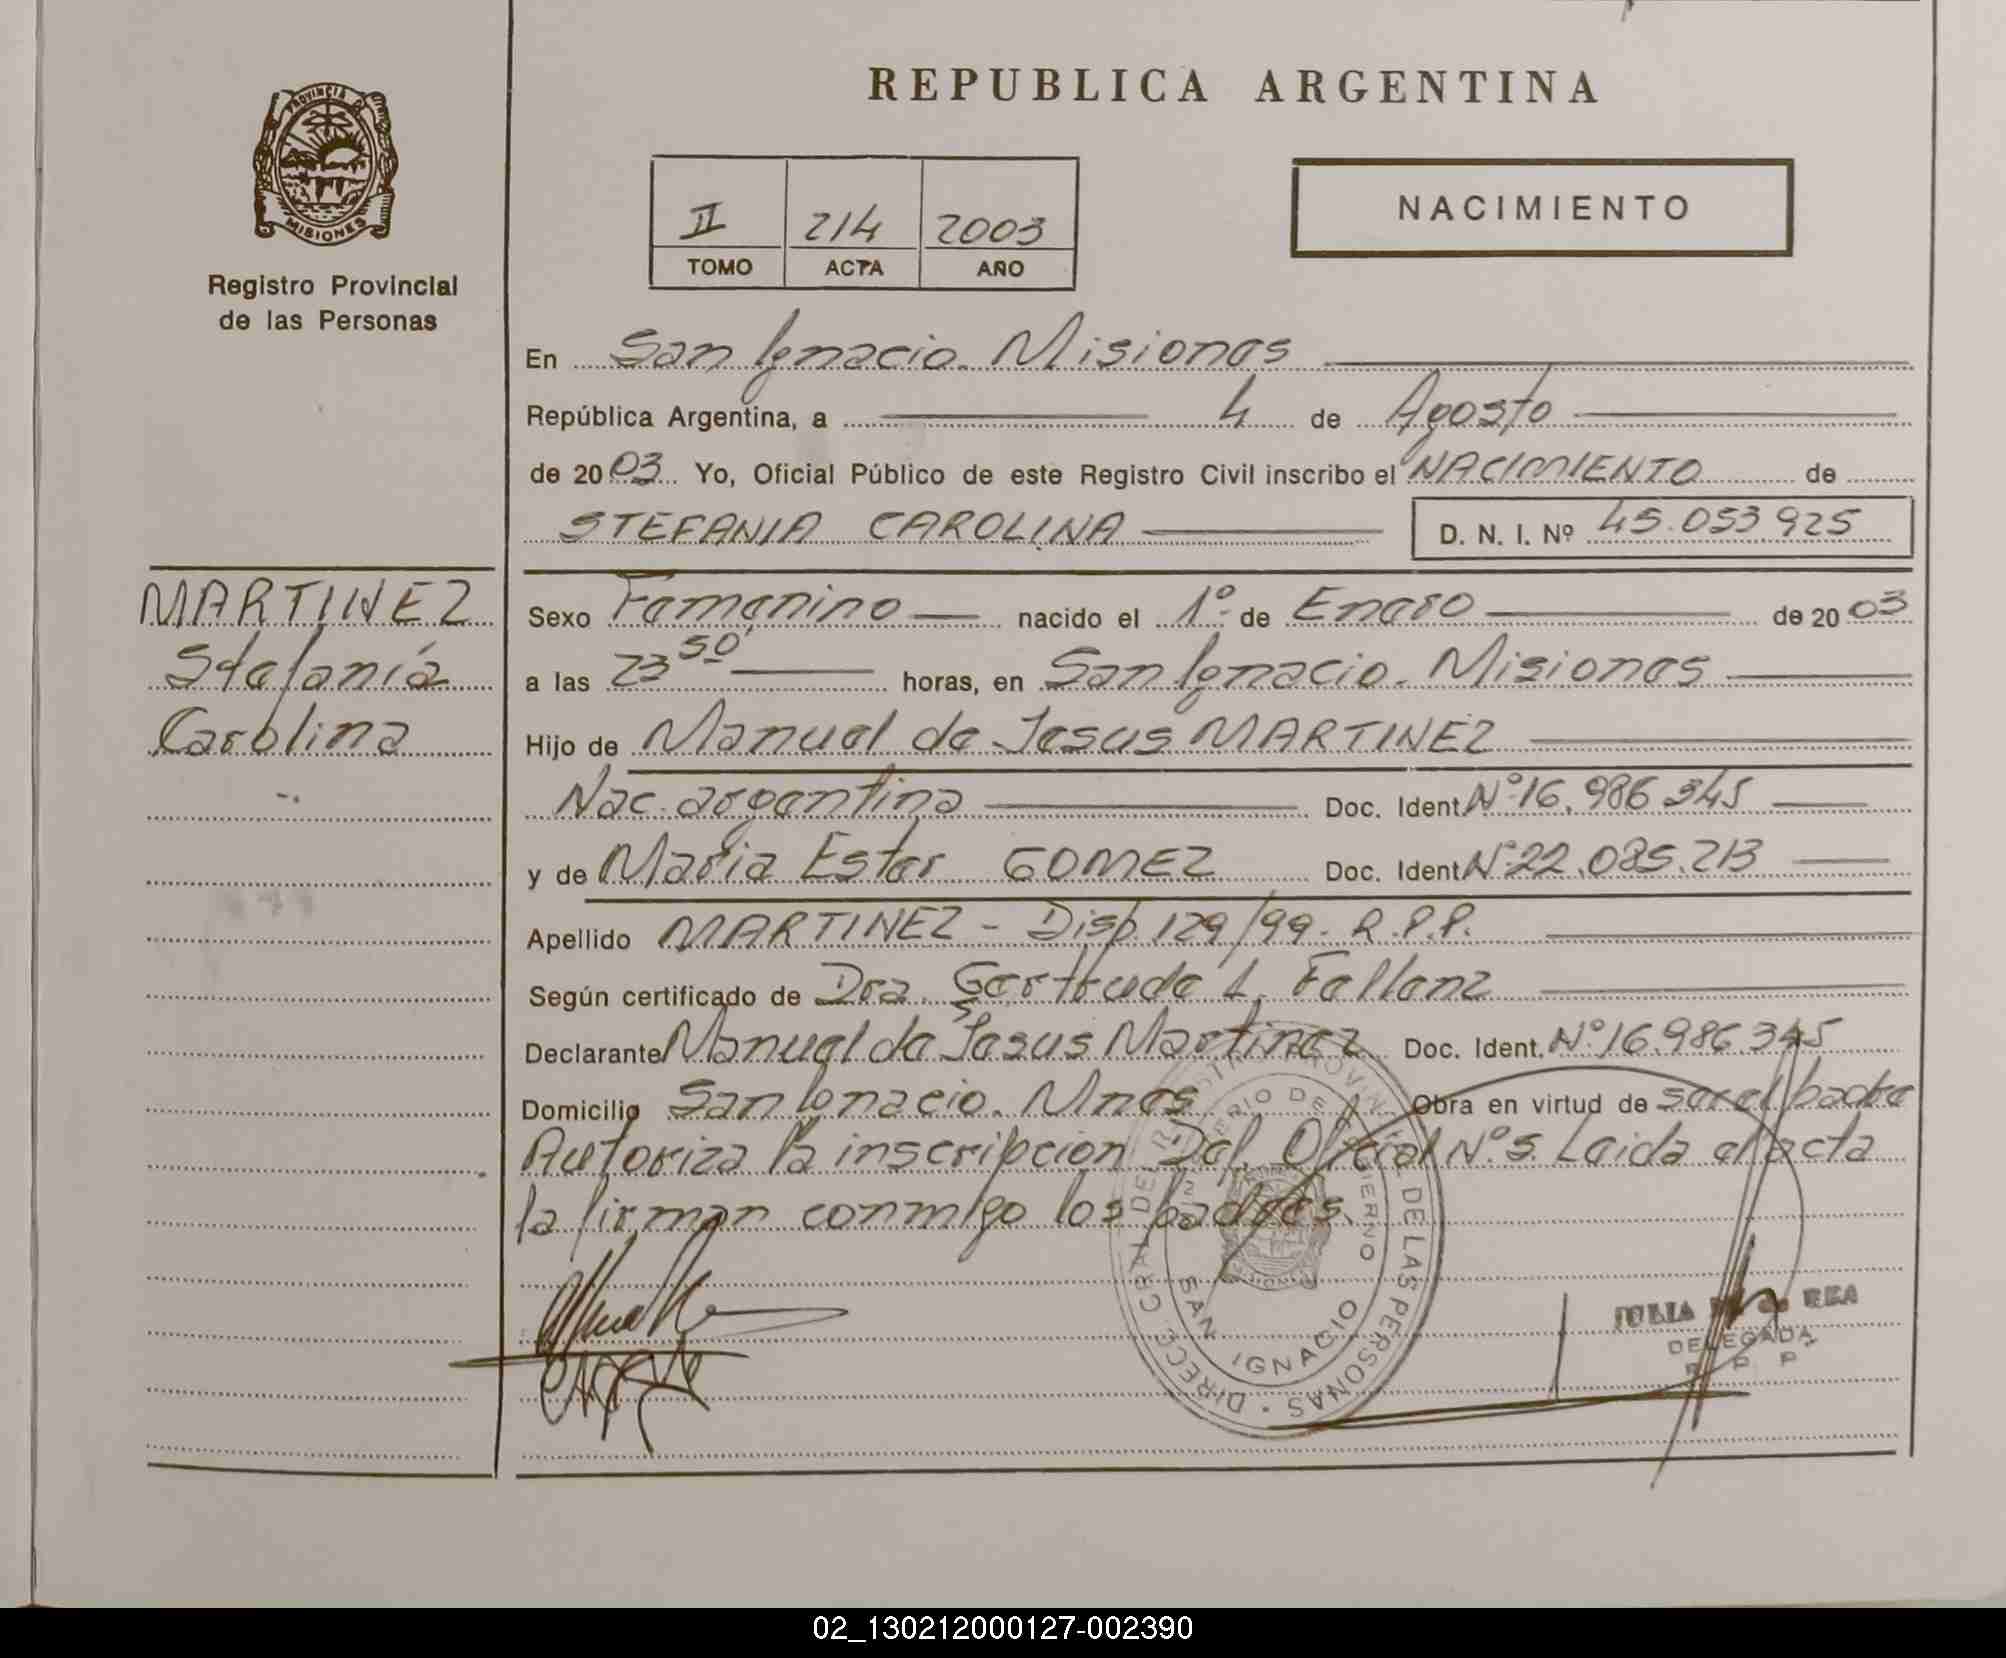 REPUBLICA ARGENTINA
PROVINCIA DE
MISIONES
Registro Provincial
de las Personas
II 214 2003
TOMO ACTA AÑO
NACIMIENTO
En San Ignacio. Misiones
República Argentina, a 4 de Agosto
de 2003 Yo, Oficial Público de este Registro Civil inscribo el NACIMIENTO de
STEFANIA CAROLINA D. N. I. Nº 45.053.925
MARTINEZ
Stefanía
Carolina
Sexo Femenino nacido el 1º de Enero de 2003
a las 23 50' horas, en San Ignacio. Misiones
Hijo de Manuel de Jesus MARTINEZ
Nac. argentina Doc. Ident. Nº 16.986.345
y de Maria Ester GOMEZ Doc. Ident. Nº 22.085.213
Apellido MARTINEZ - Disp. 129/99. R.P.P.
Según certificado de Dra. Gertrude L. Fallenz
Declarante Manuel de Jesus Martinez Doc. Ident. Nº 16.986.345
Domicilio San Ignacio. Mnes Obra en virtud de ser el padre
Autoriza la inscripcion Del. Oficial Nº 5. Leida el acta
la firman conmigo los padres.
DIRECC. GRAL. DEL DE LAS PERSONAS
SAN IGNACIO
MISIONES
JULIA de REA
DELEGADA
R P P
02_130212000127-002390